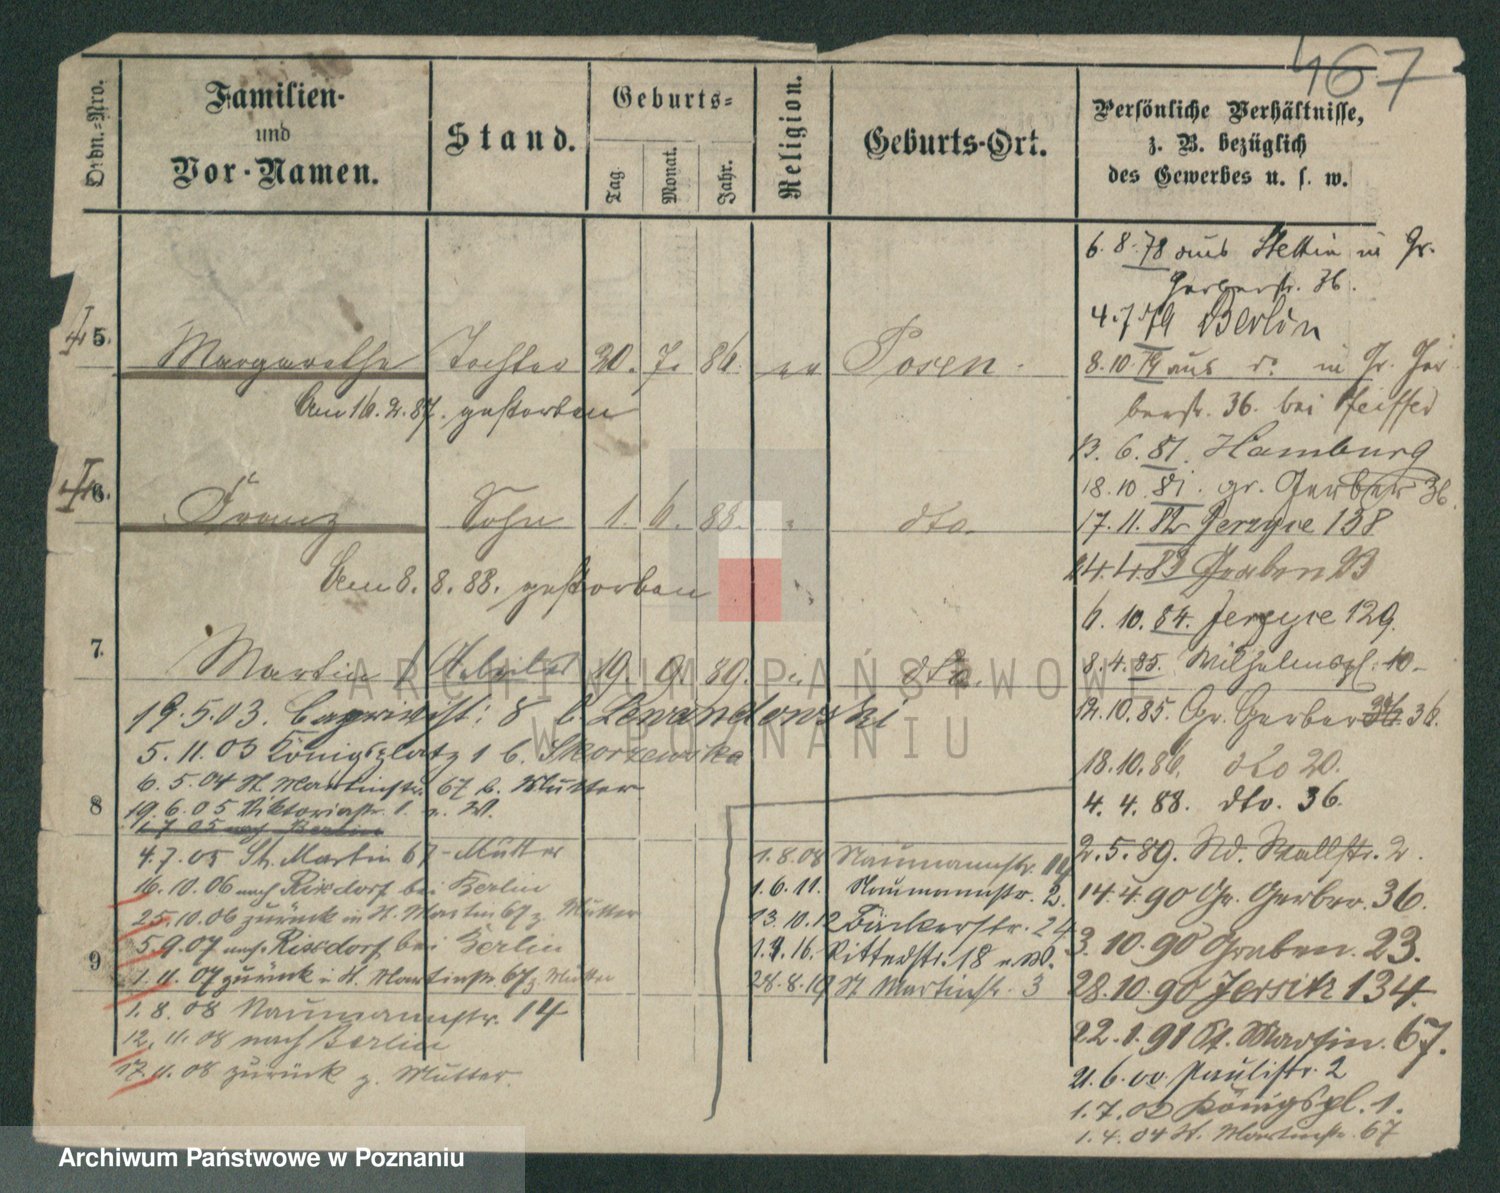 467
Ordn.-Nro.
Familien-
und
Vor-Namen.
Stand.
Geburts=
Tag.
Monat.
Jahr.
Religion.
Geburts-Ort.
Persönliche Verhältnisse,
z. B. bezüglich
des Gewerbes u. s. w.
5. Margarethe Tochter 20. 7. 86. ev Posen.
Am 16. 2. 87. gestorben
6. Franz Sohn 1. 6. 88. " dto.
Am 8. 8. 88. gestorben
7. Martin 19. 9. 89. " dto.
19.5.03. Caprivist: 8 b Lewandowski
5.11.03 Königsplatz 1 b. Skorzewska
6.5.04 St. Martinstr. 67 b. Mutter
8
19.6.05 Viktoriastr. 1. n. W.
1.7.05 nach Berlin
4.7.05 St. Martin 67 - Mutter
16.10.06 nach Rixdorf bei Berlin
25.10.06 zurück in St. Martin 67 z. Mutter
5.9.07 nach Rixdorf bei Berlin
9
1.11.07 zurück i. St. Martinstr. 67 z. Mutter
1.8.08 Naumannstr. 14
12.11.08 nach Berlin
17.11.08 zurück z. Mutter.
1.8.08 Naumannstr. 14
1.6.11. Naumannstr. 2.
13.10.12 Bäckerstr. 24
1.4.16. Ritterstr. 18 n. W.
28.8.19 St Martinstr. 3
6.8.78 aus Stettin in Gr.
Gerberstr. 36.
4.7.79 Berlin
8.10.79 aus d. in Gr. Ger
berstr. 36. bei Pfeiffer
13.6.81. Hamburg
18.10.81. gr. Gerber 36.
17.11.82 Jerzyce 138
24.4.83 Graben 23
6.10.84. Jerzyce 129.
8.4.85. Wilhelmspl. 10.
12.10.85. Gr. Gerber 36.
18.10.86. dto 20.
4.4.88. dto. 36.
2.5.89. Nd. Wallstr. 2.
14.4.90 Gr. Gerber. 36.
3.10.90 Graben. 23.
28.10.90 Jersitz 134.
22.1.91 St. Martin. 67.
21.6.00 Paulistr. 2
1.7.02 Königspl. 1.
1.4.04 St. Martinstr. 67
ARCHIWUM PAŃSTWOWE
W POZNANIU
Archiwum Państwowe w Poznaniu